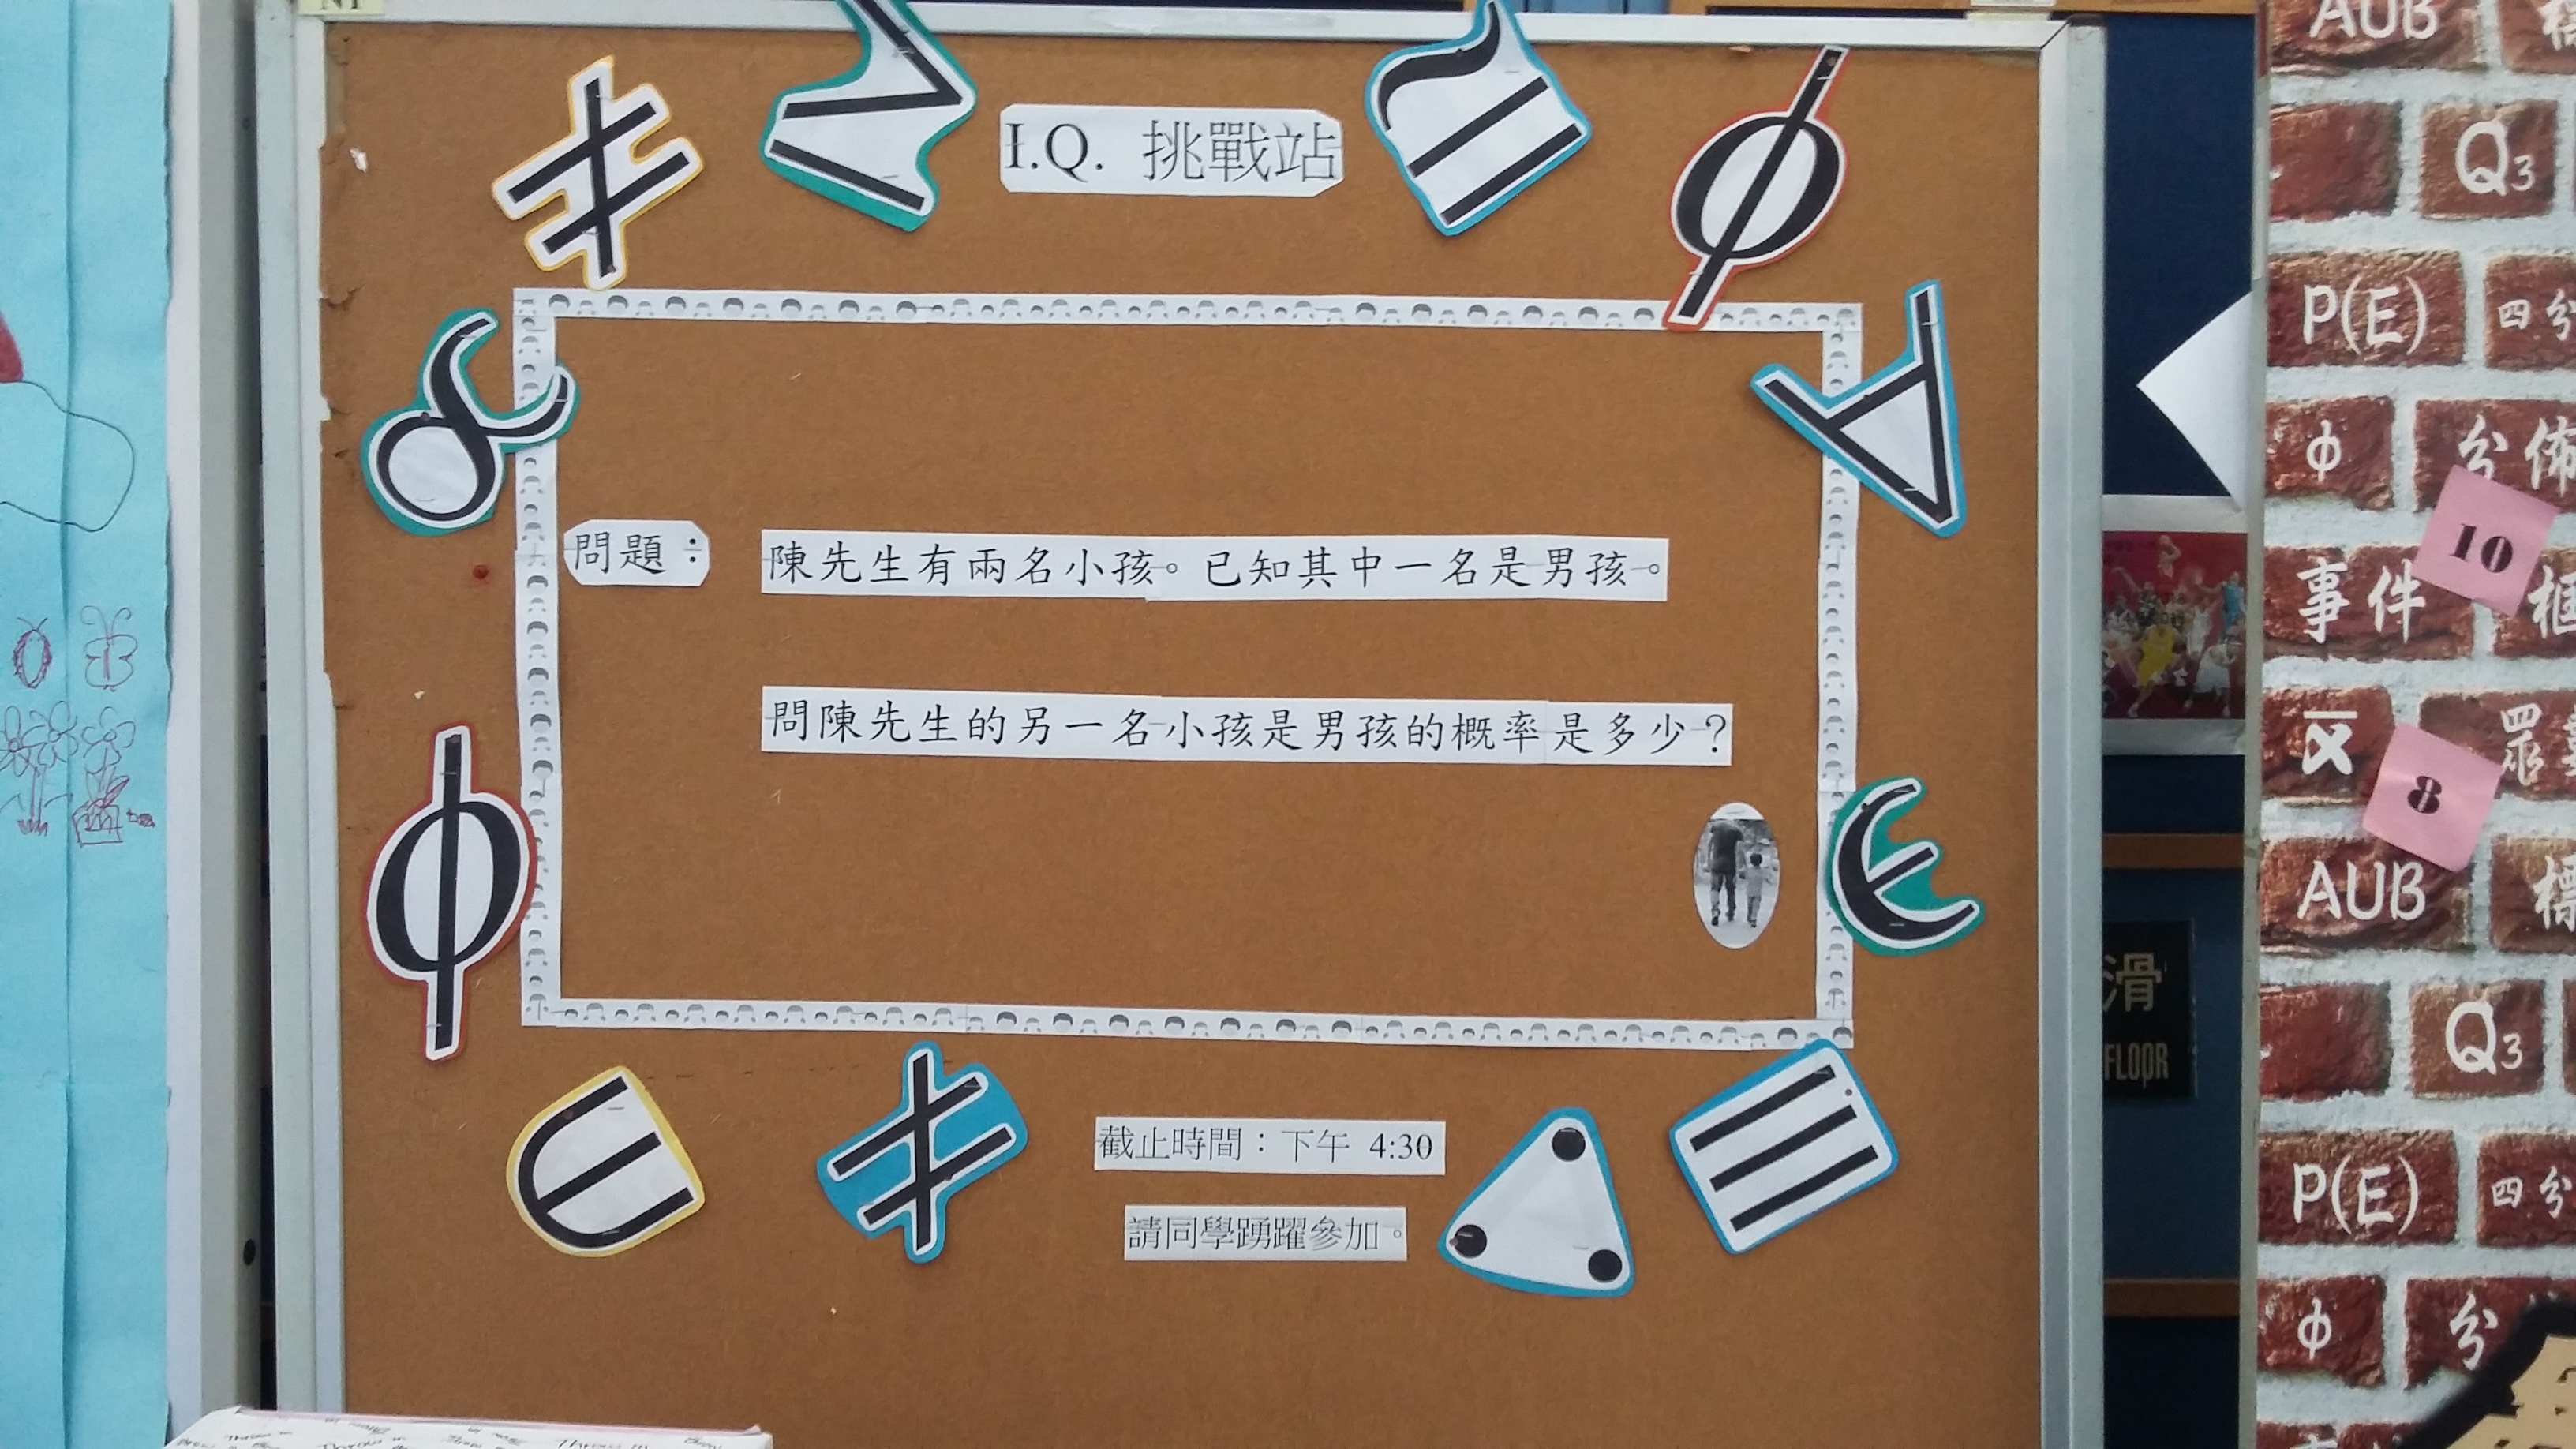 I.Q. 挑戰站
問題：
陳先生有兩名小孩。已知其中一名是男孩。
問陳先生的另一名小孩是男孩的概率是多少？
截止時間：下午 4:30
請同學踴躍參加。
AUB
Q3
P(E)
四分
ф
分佈
10
事件
x̄
眾
8
AUB
Q3
P(E)
四分
ф
分
滑
FLOOR